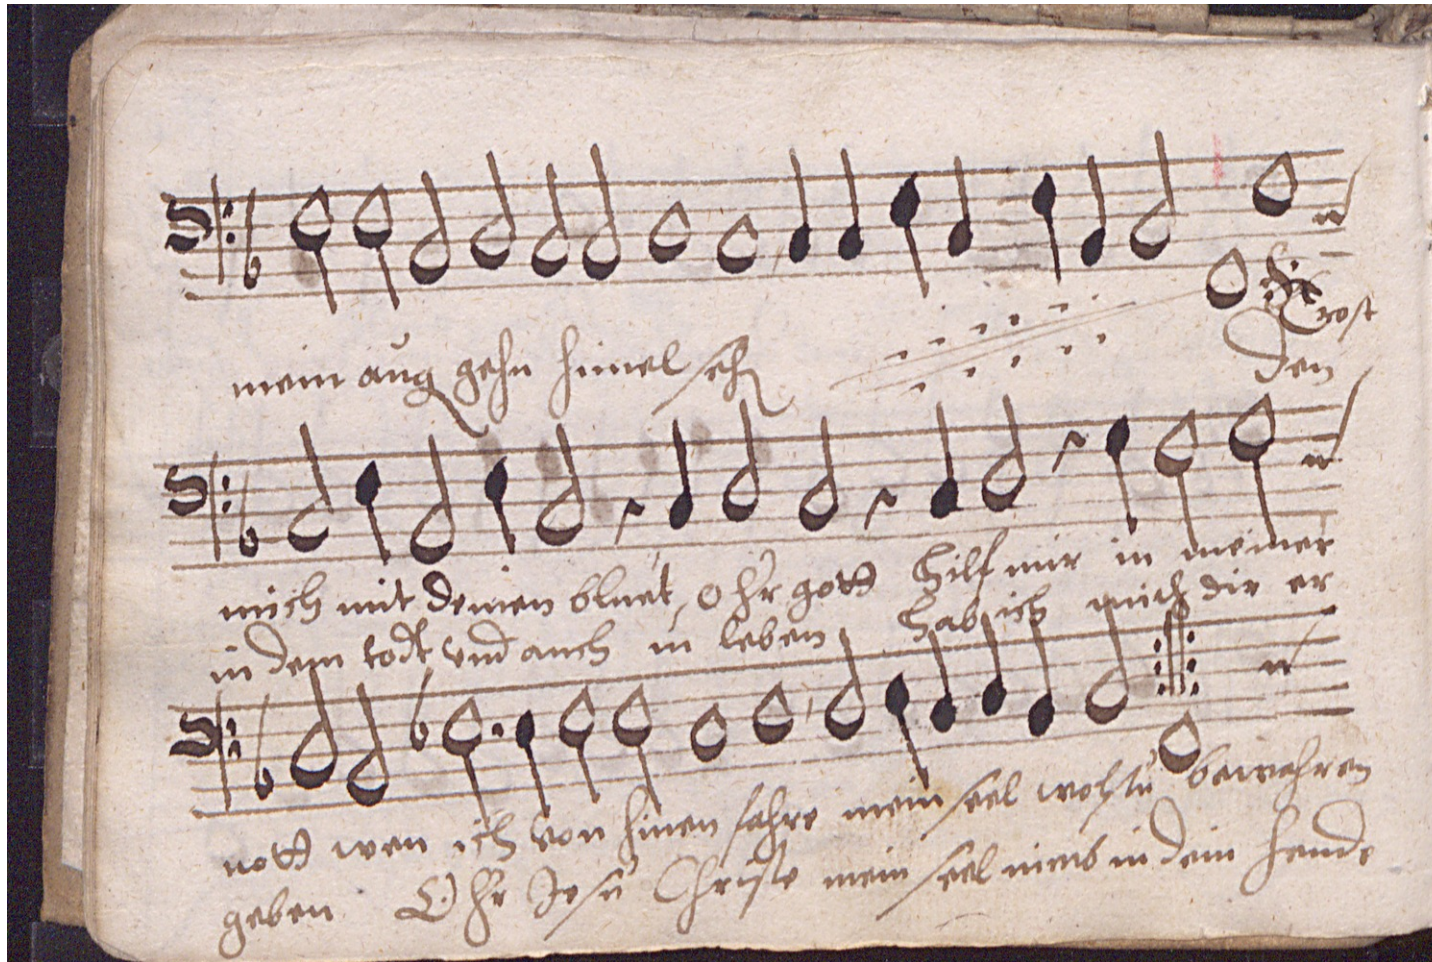 mein aug gehn himel seh
Trost
den
mich mit deinen bluet, o hr gott hilf mir in meiner
in dem todt vnd auch in leben hab ich mich dir er
nott wen ich von hinen fahre mein seel wolstu bewahren
geben O hr Jesu Christe mein seel nimb in dein hende